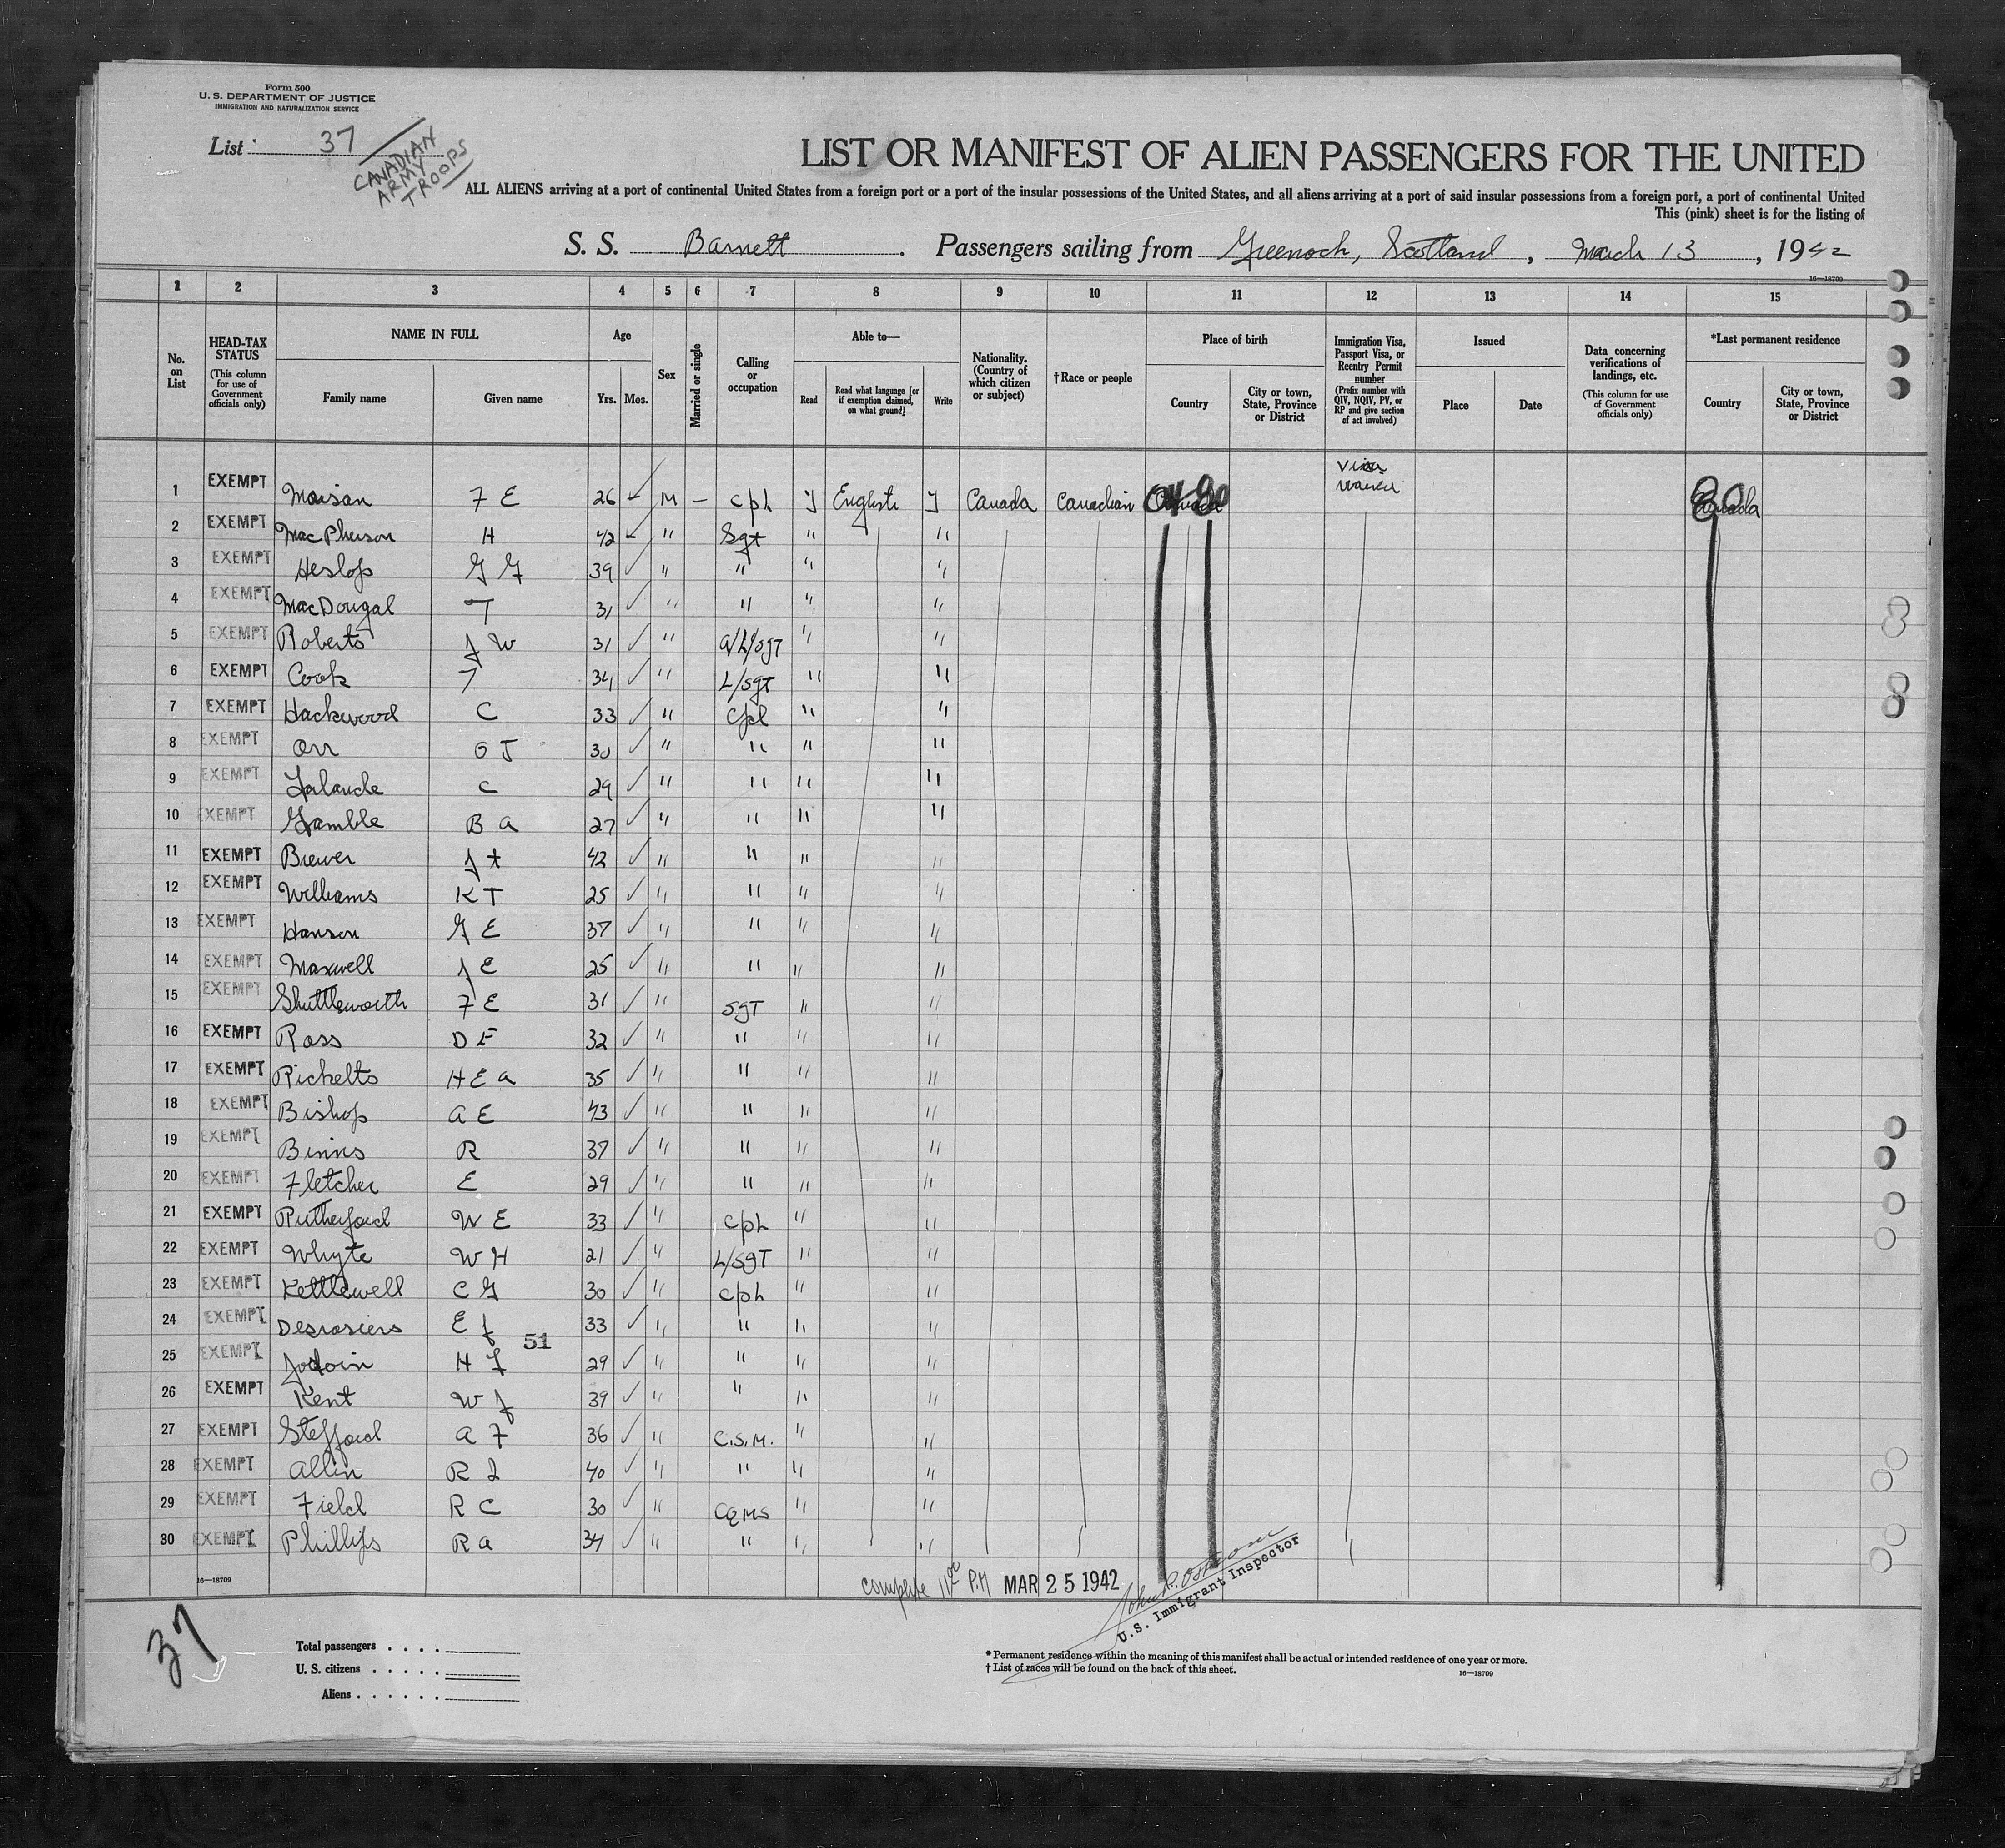 Form 500
U. S. DEPARTMENT OF JUSTICE
IMMIGRATION AND NATURALIZATION SERVICE
List 37
CANADIAN ARMY TROOPS
LIST OR MANIFEST OF ALIEN PASSENGERS FOR THE UNITED
ALL ALIENS arriving at a port of continental United States from a foreign port or a port of the insular possessions of the United States, and all aliens arriving at a port of said insular possessions from a foreign port, a port of continental United
This (pink) sheet is for the listing of
S. S. Barnett. Passengers sailing from Greenock, Scotland, March 13, 1942
16—18709
1 2 3 4 5 6 7 8 9 10 11 12 13 14 15
No. on List
HEAD-TAX STATUS
(This column for use of Government officials only)
NAME IN FULL
Family name
Given name
Age
Yrs.
Mos.
Sex
Married or single
Calling or occupation
Able to—
Read
Read what language [or if exemption claimed, on what ground]
Write
Nationality. (Country of which citizen or subject)
†Race or people
Place of birth
Country
City or town, State, Province or District
Immigration Visa, Passport Visa, or Reentry Permit number
(Prefix number with QIV, NQIV, PV, or RP and give section of act involved)
Issued
Place
Date
Data concerning verifications of landings, etc.
(This column for use of Government officials only)
*Last permanent residence
Country
City or town, State, Province or District
1 EXEMPT Moisan F E 26 M — Cpl y English y Canada Canadian Canada Visa waived Canada
2 EXEMPT MacPherson H 42 " Sgt " "
3 EXEMPT Heslop G G 39 " " " "
4 EXEMPT MacDougal T 31 " " " "
5 EXEMPT Roberts J W 31 " a/L/sgt " "
6 EXEMPT Cook T 34 " L/sgt " "
7 EXEMPT Hackwood C 33 " Cpl " "
8 EXEMPT Orr O J 30 " " " "
9 EXEMPT Lalande C 29 " " " "
10 EXEMPT Gamble B A 27 " " " "
11 EXEMPT Brewer 42 " " " "
12 EXEMPT Williams K T 25 " " " "
13 EXEMPT Hanson G E 37 " " " "
14 EXEMPT Maxwell J E 25 " " " "
15 EXEMPT Shuttleworth F E 31 " sgt " "
16 EXEMPT Ross D F 32 " " " "
17 EXEMPT Ricketts H E A 35 " " " "
18 EXEMPT Bishop A E 43 " " " "
19 EXEMPT Binns R 37 " " " "
20 EXEMPT Fletcher E 29 " " " "
21 EXEMPT Rutherford W E 33 " Cpl " "
22 EXEMPT Whyte W H 21 " L/sgt " "
23 EXEMPT Kettlewell C G 30 " Cpl " "
24 EXEMPT Desrosiers E J 33 " " " "
51
25 EXEMPT Jodoin H J 29 " " " "
26 EXEMPT Kent W J 39 " " " "
27 EXEMPT Stefford A F 36 " C.S.M. " "
28 EXEMPT Allin R I 40 " " " "
29 EXEMPT Field R C 30 " CQMS " "
30 EXEMPT Phillips R A 34 " " " "
16—18709
complete 11 00 P.M MAR 25 1942
U.S. Immigrant Inspector
37
Total passengers
U. S. citizens
Aliens
*Permanent residence within the meaning of this manifest shall be actual or intended residence of one year or more.
†List of races will be found on the back of this sheet.
16—18709